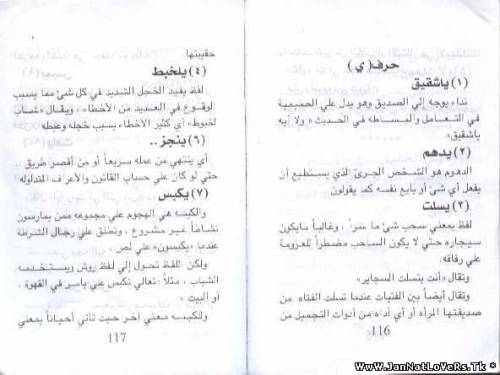 حرف(ي)
(١) ياشقيق
نداء يوجه إلي الصديق وهو يدل علي الحميمية
في التعامل والبساطه في الحديث « ولا أيه
ياشقيق»
(٢) يدهم
الدهوم هو الشخص الجرئ الذي يستطيع أن
يفعل أي شئ أو بايع نفسه كما يقولون
(٣) يسلت
لفظ بمعني سحب شئ ما سراً ، وغالباً مايكون
سيجاره حتي لا يكون الساحب مضطراً للعزومة
علي رفاقه.
وتقال «أنت بتسلت السجاير»
وتقال أيضاً بين الفتيات عندما تسلت الفتاه من
صديقتها المرآه أو أي أداه من أدوات التجميل من
116
حقيبتها
(٤) يلخبط
لفظ يفيد الخجل الشديد في كل شئ مما يسبب
لوقوع في العديد من الأخطاء، ويقال «شاب
لخبوط» أي كثير الأخطاء بسبب خجله وعبطه
(٦) ينجز..
أي ينتهي من عمله سريعاً أو من أقصر طريق ..
حتي لو كان علي حساب القانون والأعراف المتداوله
(٧) يكبس
والكبسه هي الهجوم علي مجموعه ممن يمارسون
نشاطاً غير مشروع ، وتطلق علي رجال الشرطة
عندما «يكبسون» علي لص .
ولكن اللفظ تحول إلي لفظ روش ويستخدمه
الشباب . مثلاً: تعالي نكبس علي ياسر في القهوة ،
أو البيت »
وللكبسه معني آخر حيث تأتي أحياناً بمعني
117
WwW.JanNatLoVeRs.Tk *